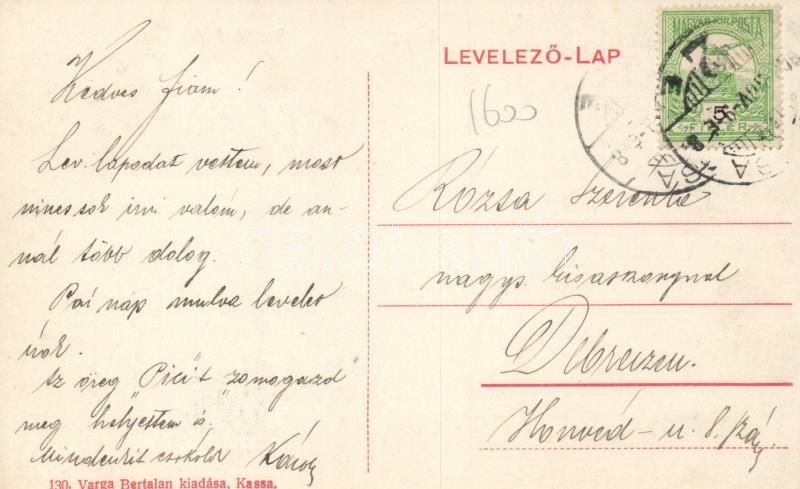 LEVELEZŐ-LAP
MAGYAR KIR. POSTA
5
FILLÉR
1600
Kedves fiam!
Lev. lapodat vettem, most
nincs sok irni valóm, de an-
nál több dolog.
Pár nap mulva levelet
irok.
Az öreg "Pici"-t "zomagozd"
meg helyettem is.
Mindenkit csókol Károly
Rózsa Szerénke
nagys. kisasszonynak
Debreczen.
Honvéd-u. 8. szám
130. Varga Bertalan kiadása, Kassa.